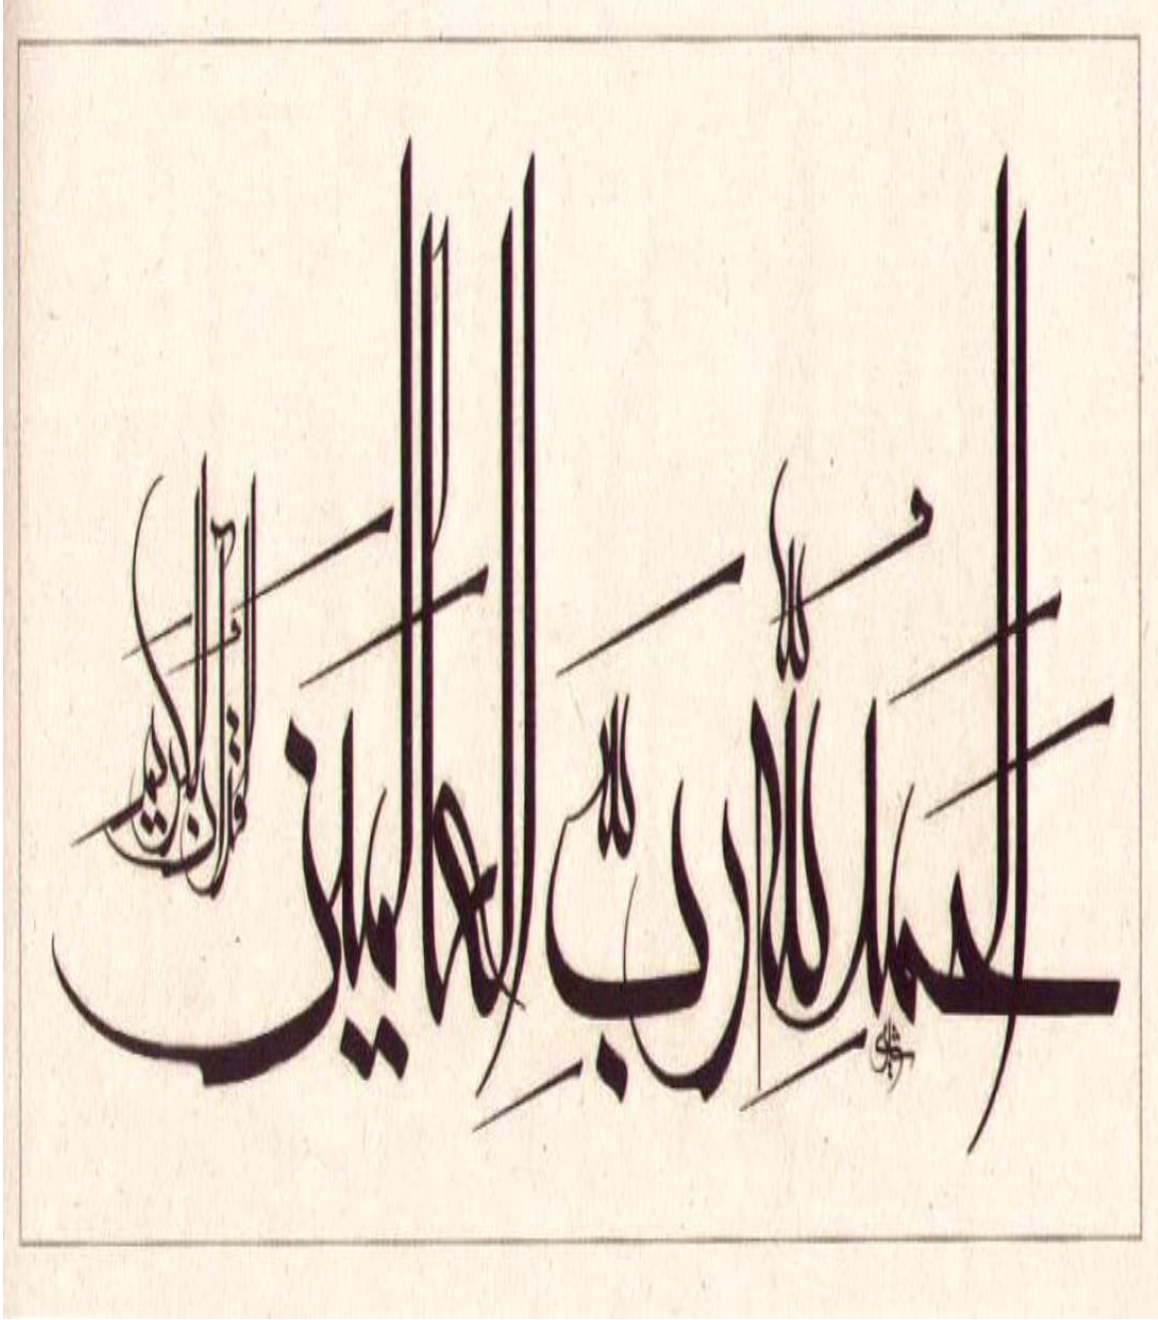 الحَمْدُ لِلّٰهِ رَبِّ العَالَمِينَ
القرآن الكريم